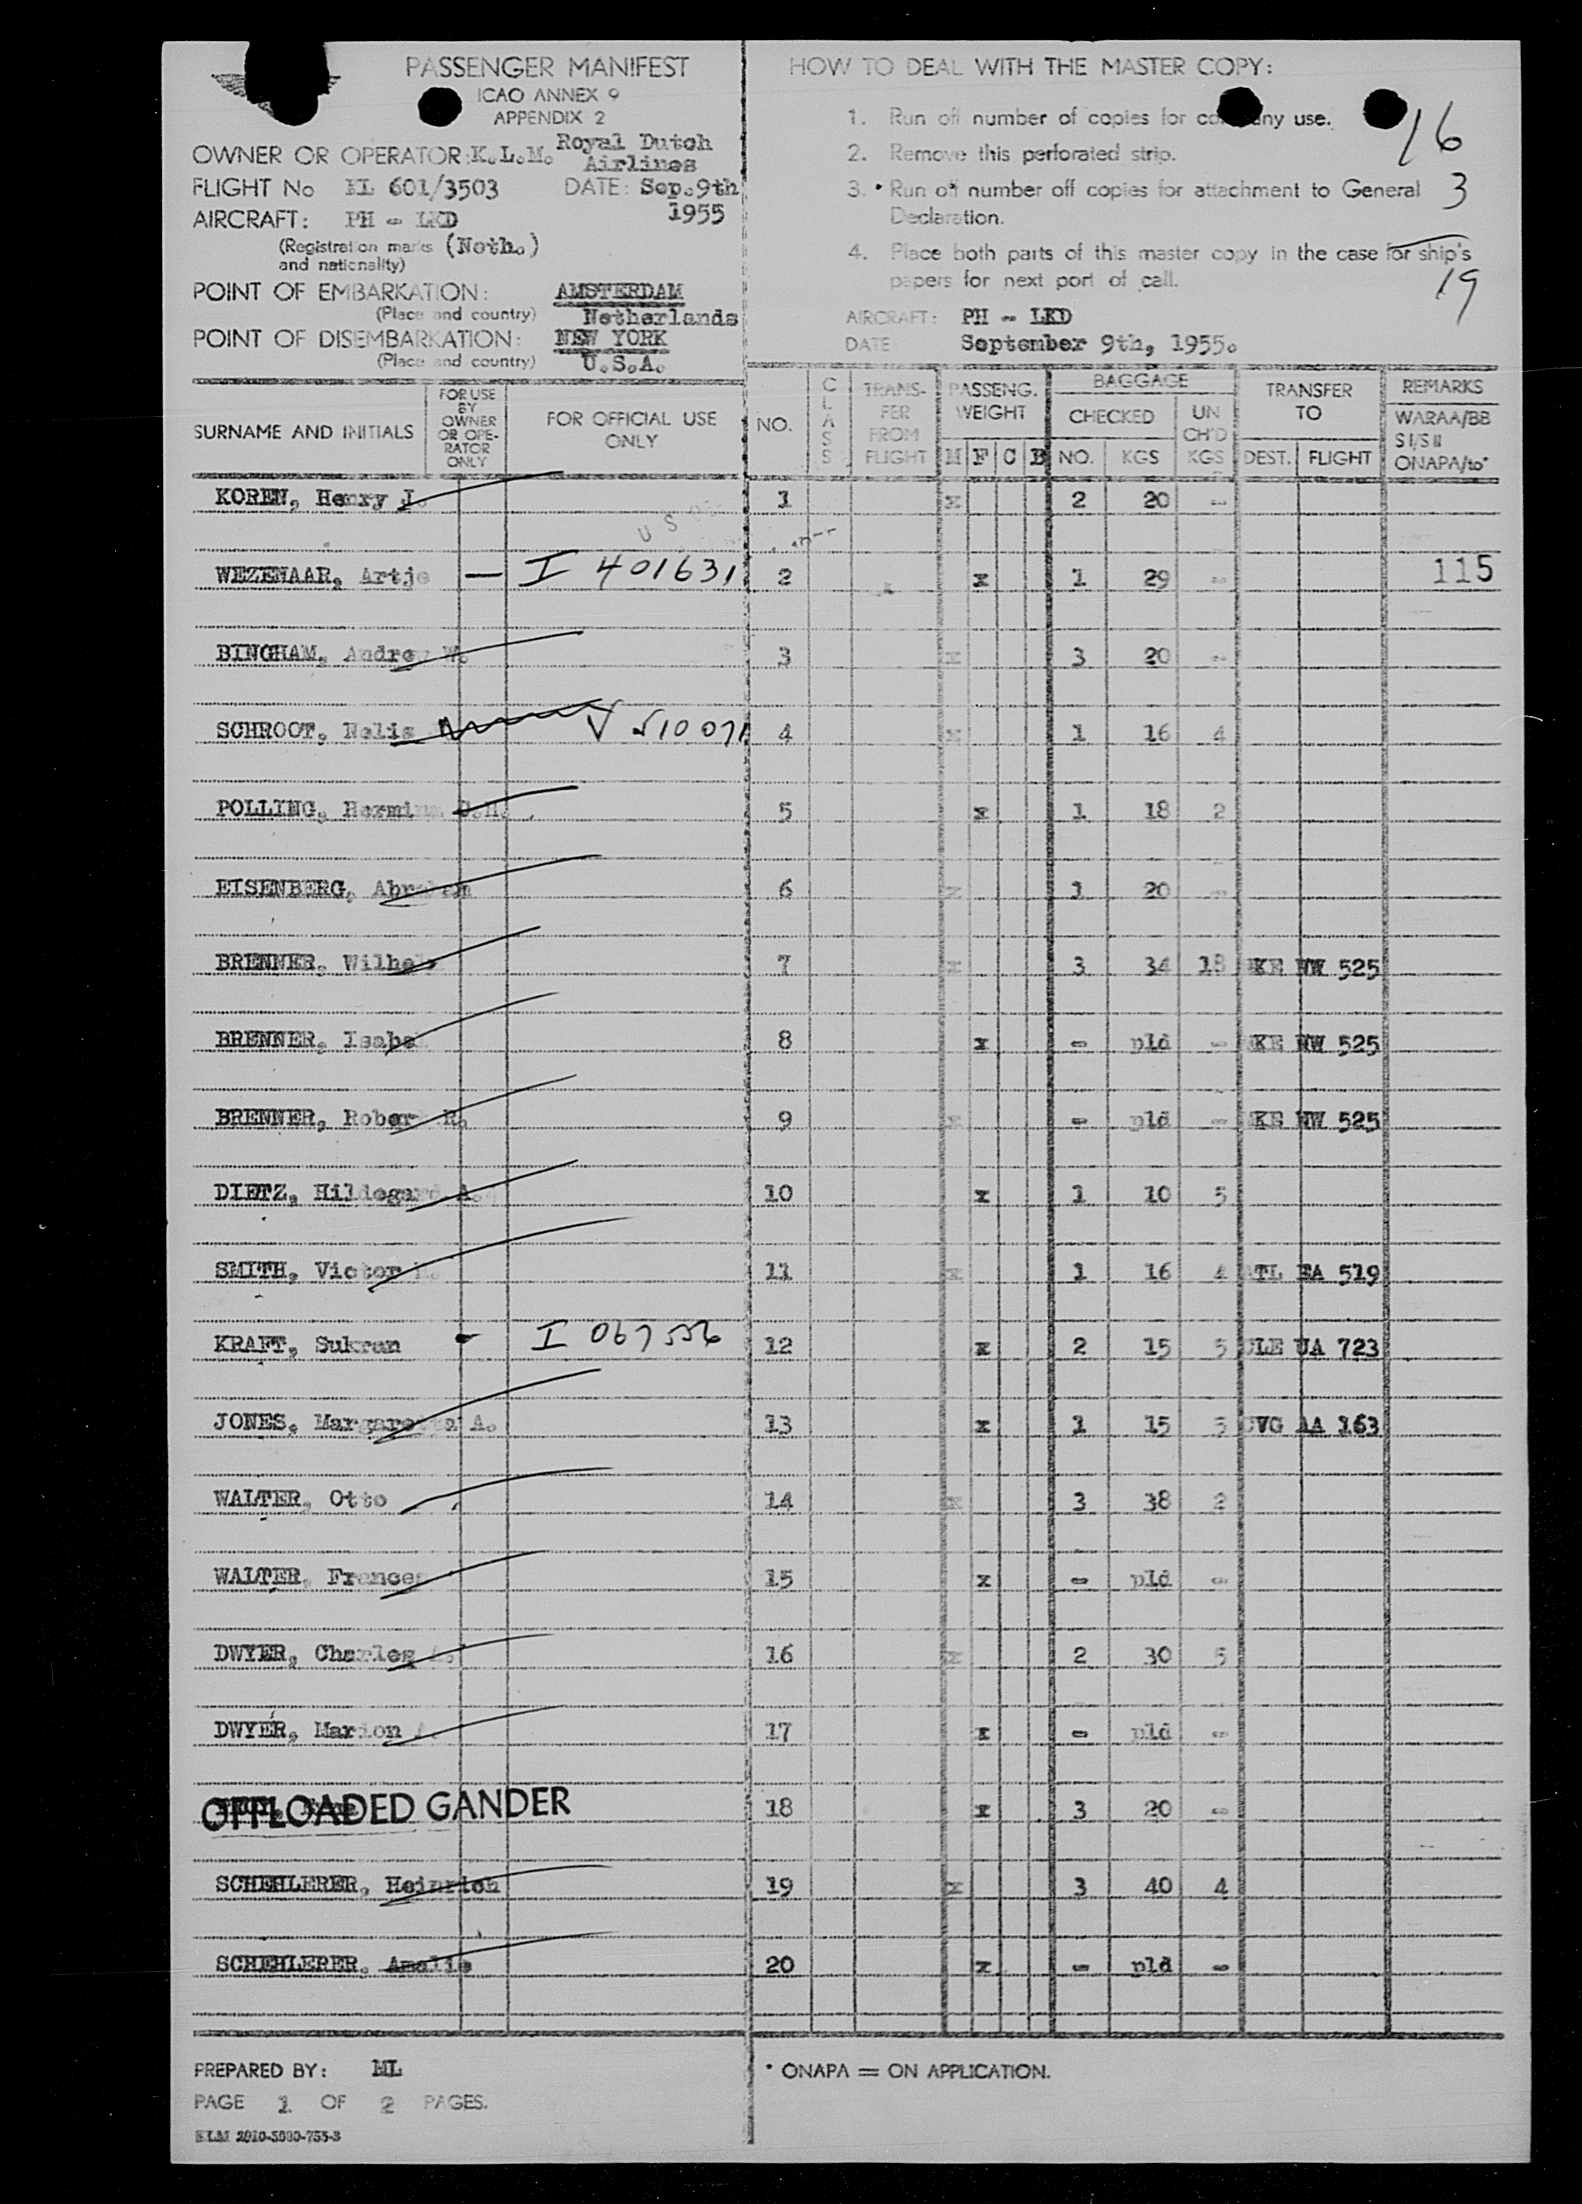 PASSENGER MANIFEST
ICAO ANNEX 9
APPENDIX 2
OWNER OR OPERATOR: K.L.M. Royal Dutch Airlines
FLIGHT No KL 601/3503 DATE: Sep.9th 1955
AIRCRAFT: PH - LKD
(Registration marks (Neth.)
and nationality)
POINT OF EMBARKATION: AMSTERDAM
(Place and country) Netherlands
POINT OF DISEMBARKATION: NEW YORK
(Place and country) U.S.A.
HOW TO DEAL WITH THE MASTER COPY:
1. Run off number of copies for company use. 16
2. Remove this perforated strip.
3. Run off number off copies for attachment to General 3
Declaration.
4. Place both parts of this master copy in the case for ship's
papers for next port of call. 19
AIRCRAFT: PH - LKD
DATE September 9th, 1955.
SURNAME AND INITIALS FOR USE BY OWNER OR OPE-RATOR ONLY FOR OFFICIAL USE ONLY NO. CLASS TRANS-FER FROM FLIGHT PASSENG. WEIGHT M F C B BAGGAGE CHECKED NO. KGS UN CH'D KGS TRANSFER TO DEST. FLIGHT REMARKS WARAA/BB S I/S II ONAPA/to*
KOREN, Henry J. 1 x 2 20 -
WEZENAAR, Artje — I 401631 2 x 1 29 - 115
BINGHAM, Audrey W. 3 x 3 20 -
SCHROOT, Nelis V 510071 4 x 1 16 4
POLLING, Hermina C.H. 5 x 1 18 2
EISENBERG, Abraham 6 x 1 20 -
BRENNER, Wilhelm 7 x 3 34 18 MKE NW 525
BRENNER, Isabel 8 x - pld - MKE NW 525
BRENNER, Robert R. 9 x - pld - MKE NW 525
DIETZ, Hildegard A. 10 x 1 10 5
SMITH, Victor 11 x 1 16 4 ATL EA 519
KRAFT, Sukran - I 067556 12 x 2 15 5 CLE UA 723
JONES, Margaretta A. 13 x 1 15 5 CVG AA 163
WALTER, Otto 14 x 3 38 2
WALTER, Frances 15 x - pld -
DWYER, Charles A. 16 x 2 30 5
DWYER, Marion 17 x - pld -
OFFLOADED GANDER 18 x 3 20 -
SCHEHLERER, Heinrich 19 x 3 40 4
SCHEHLERER, Amalie 20 x - pld -
PREPARED BY: ML
* ONAPA = ON APPLICATION.
PAGE 1 OF 2 PAGES.